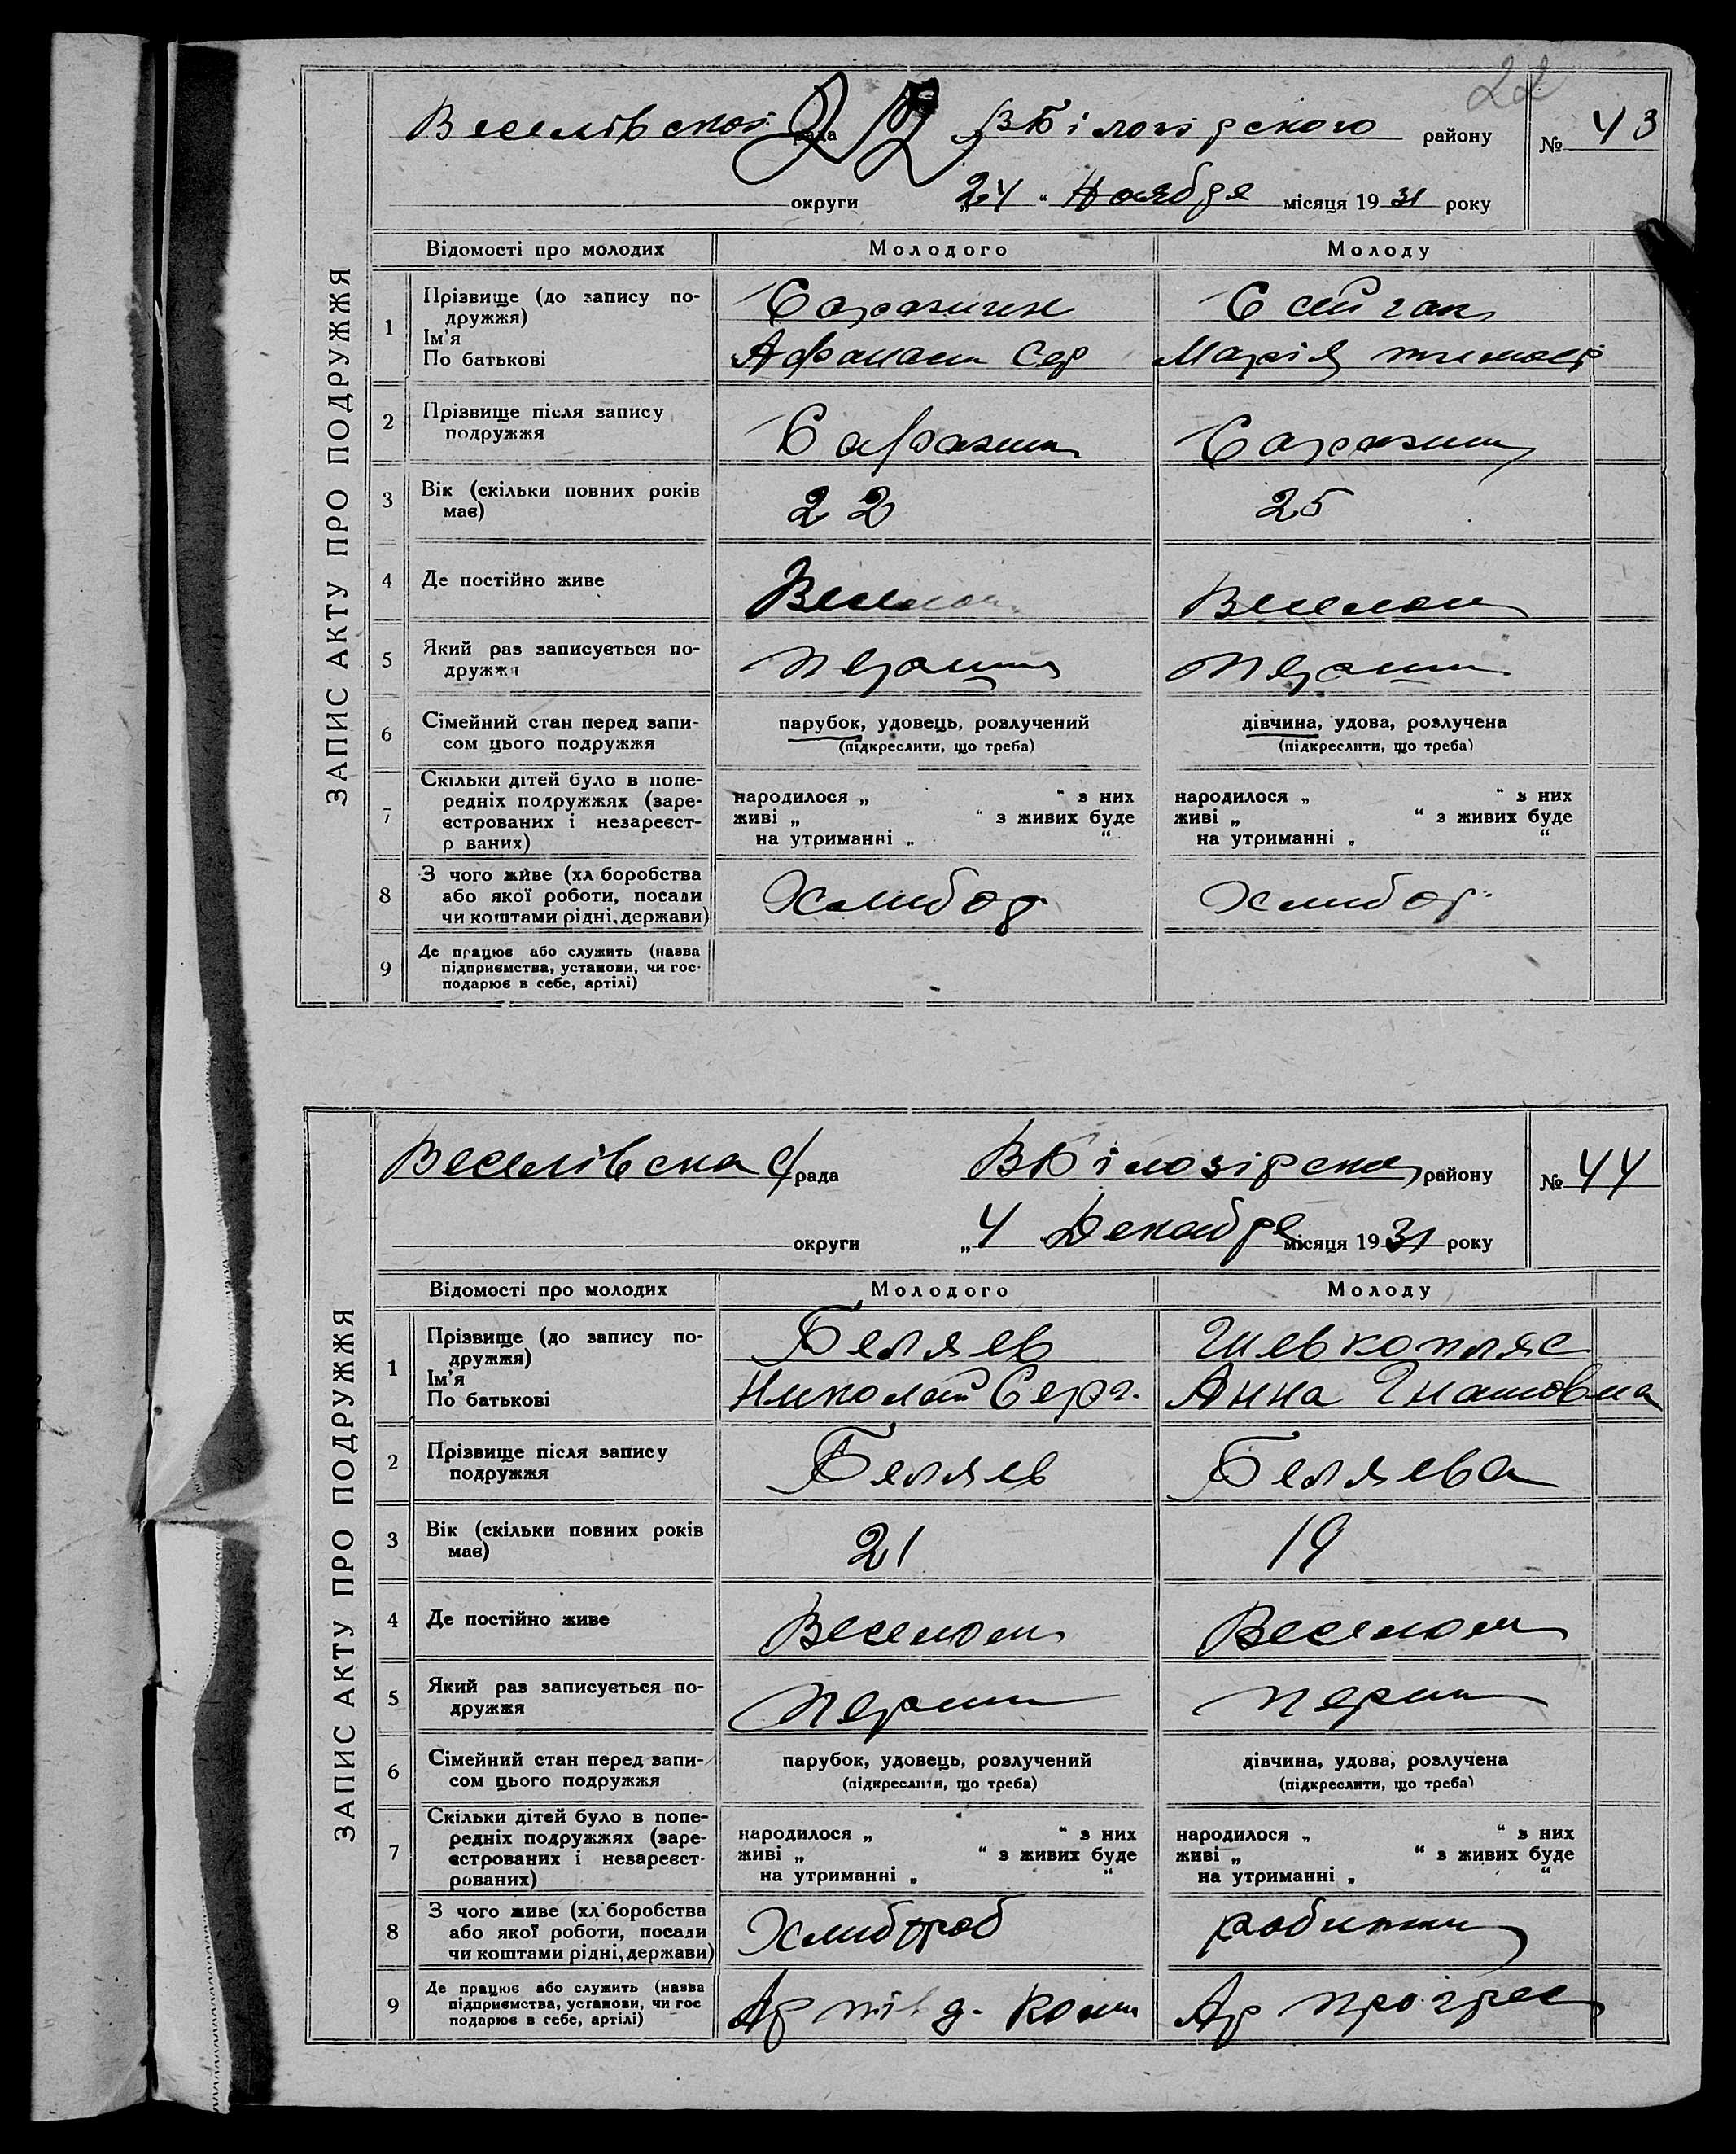 22
Веселівской рада ВБілозірского району № 43
округи „24“ Ноября місяця 1931 року
ЗАПИС АКТУ ПРО ПОДРУЖЖЯ
Відомості про молодих Молодого Молоду
1 Прізвище (до запису по-
дружжя)
Ім'я
По батькові
Афанаси Сер Марія
2 Прізвище після запису
подружжя
3 Вік (скільки повних років
має)
22 25
4 Де постійно живе
Веселом Веселом
5 Який раз записується по-
дружжя
6 Сімейний стан перед запи-
сом цього подружжя
парубок, удовець, розлучений дівчина, удова, розлучена
(підкреслити, що треба) (підкреслити, що треба)
7 Скільки дітей було в попе-
редніх подружжях (заре-
єстрованих і незареєст-
р ваних)
народилося „ “ з них народилося „ “ з них
живі „ “ з живих буде живі „ “ з живих буде
на утриманні „ “ на утриманні „ “
8 З чого живе (хл боробства
або якої роботи, посади
чи коштами рідні, держави)
Хлибор Хлибор
9 Де працює або служить (назва
підприємства, установи, чи гос-
подарює в себе, артілі)
Веселівска с/рада ВБілозірска району № 44
округи „4 Декабря місяця 1931 року
ЗАПИС АКТУ ПРО ПОДРУЖЖЯ
Відомості про молодих Молодого Молоду
1 Прізвище (до запису по-
дружжя)
Ім'я
По батькові
Беляев Шевкопляс
Николай Серг. Анна Гнатовна
2 Прізвище після запису
подружжя
Беляев Беляева
3 Вік (скільки повних років
має)
21 19
4 Де постійно живе
Веселом Веселом
5 Який раз записується по-
дружжя
6 Сімейний стан перед запи-
сом цього подружжя
парубок, удовець, розлучений дівчина, удова, розлучена
(підкреслити, що треба) (підкреслити, що треба)
7 Скільки дітей було в попе-
редніх подружжях (заре-
єстрованих і незареєст-
рованих)
народилося „ “ з них народилося „ “ з них
живі „ “ з живих буде живі „ “ з живих буде
на утриманні „ “ на утриманні „ “
8 З чого живе (хл боробства
або якої роботи, посади
чи коштами рідні, держави)
Хлибороб
9 Де працює або служить (назва
підприємства, установи, чи гос
подарює в себе, артілі)
Ар прогрес